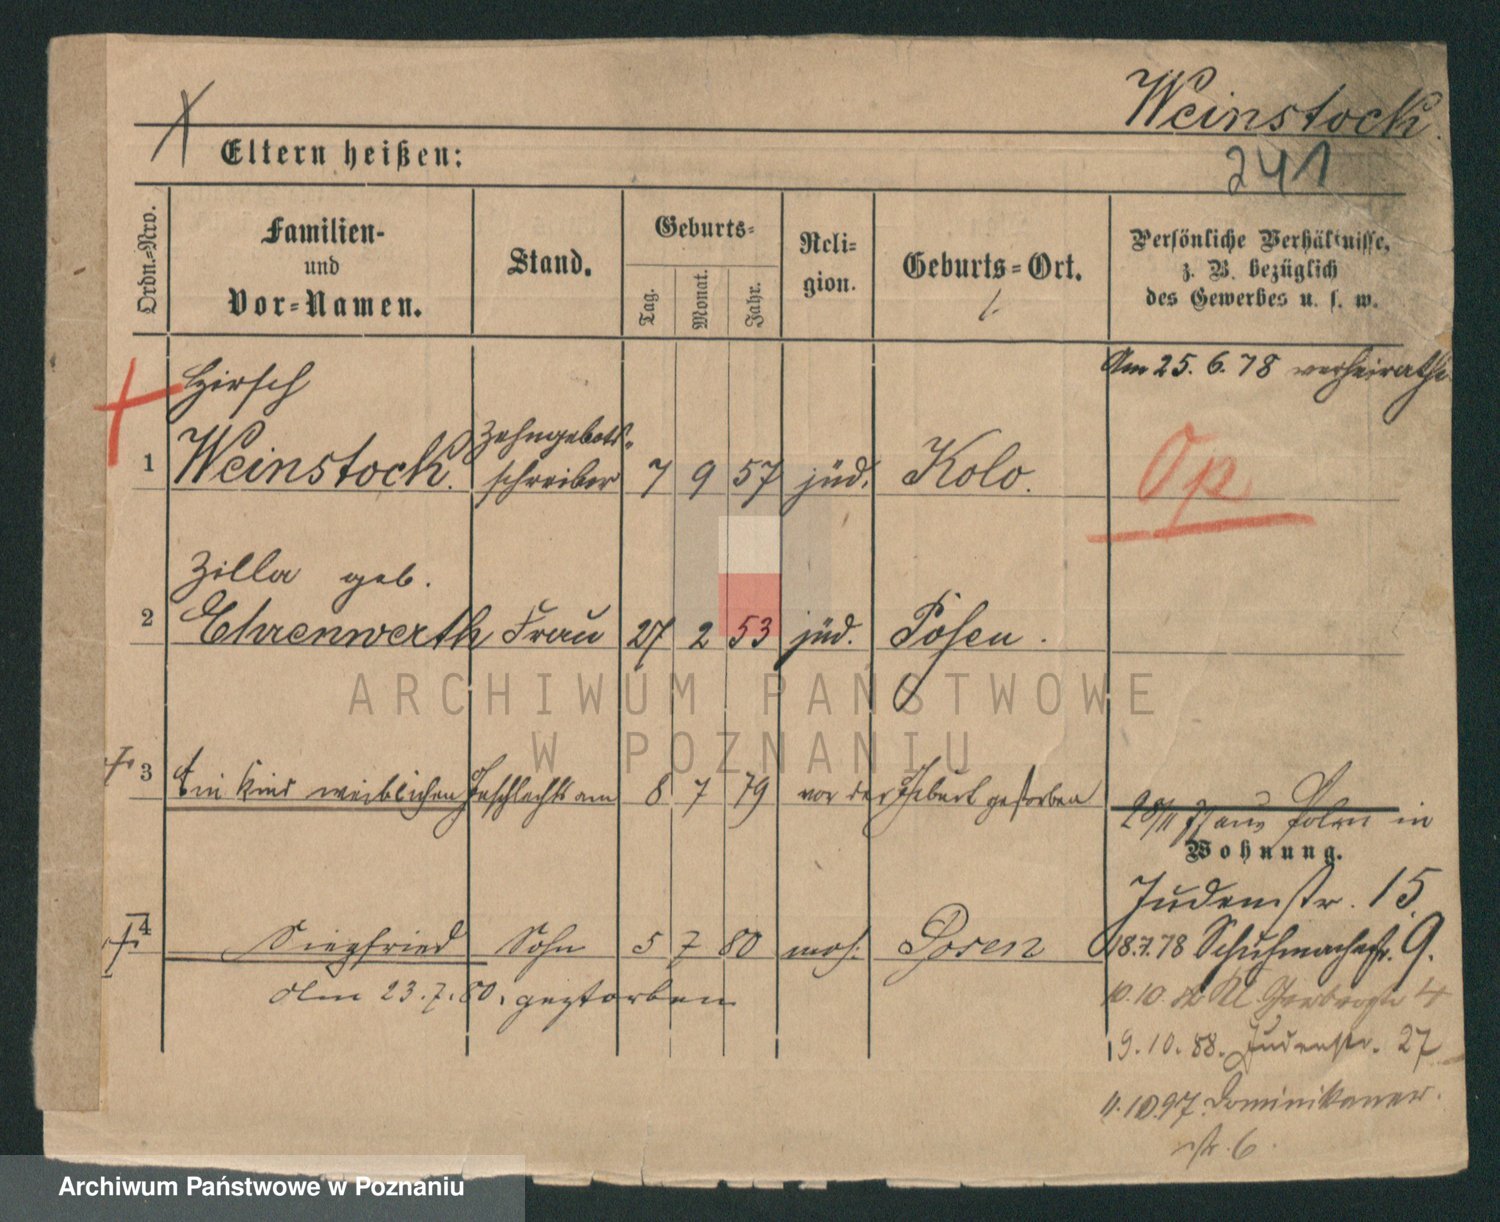 Weinstock.
241
Eltern heißen:
Ordn.=Nro.
Familien-
und
Vor=Namen.
Stand.
Geburts=
Tag.
Monat.
Jahr.
Reli=
gion.
Geburts=Ort.
Persönliche Verhältnisse,
z. B. bezüglich
des Gewerbes u. s. w.
Am 25. 6. 78 verheirathet
Hirsch
1 Weinstock. Zehngebots= schreiber 7 9 57 jüd. Kolo.
Op
Zilla geb.
2 Ehrenwerth Frau 27 2 53 jüd. Posen.
ARCHIWUM PAŃSTWOWE
W POZNANIU
3 Ein Kind weiblichen Geschlechts am 8 7 79 vor der Geburt gestorben
aus Polen in
Wohnung.
Judenstr. 15.
4 Siegfried Sohn 5 7 80 mos. Posen
18.7.78 Schuhmacherstr. 9.
Am 23.7.80. gestorben
10.10. Kl. Gerberstr 4
9.10.88. Judenstr. 27
4.10.97. Dominikaner.
str. 6.
Archiwum Państwowe w Poznaniu